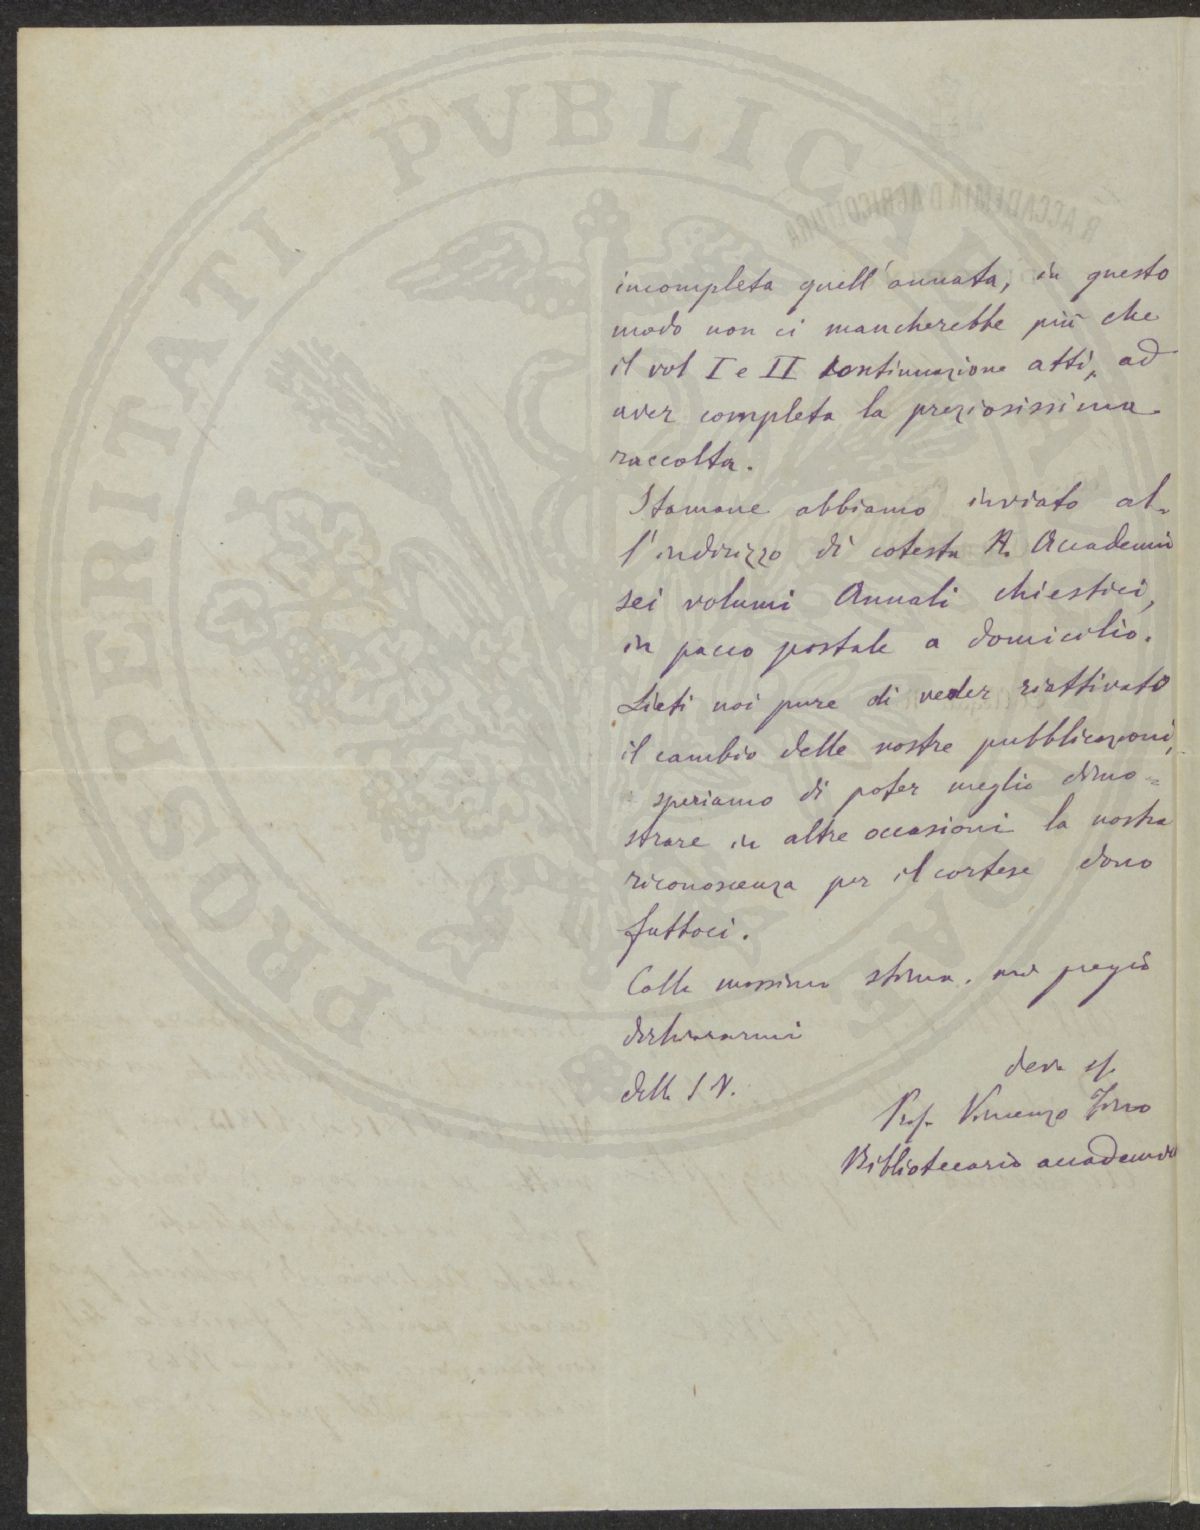 PROSPERITATI PVBLICAE
R. ACCADEMIA D'AGRICOLTURA
incompleta quell'annata, in questo
modo non ci mancherebbe più che
il vol I e II continuazione atti, ad
aver completa la preziosissima
raccolta.
Stamane abbiamo inviato al-
l'indirizzo di cotesta R. Accademia
sei volumi Annali chiestici,
in pacco postale a domicilio.
Lieti noi pure di veder riattivato
il cambio delle nostre pubblicazioni,
speriamo di poter meglio dimo=
strare in altre occasioni la nostra
riconoscenza per il cortese dono
fattoci.
Colla massima stima, mi pregio
dichiararmi
della S V.
Prof. Vincenzo
Bibliotecario accademico